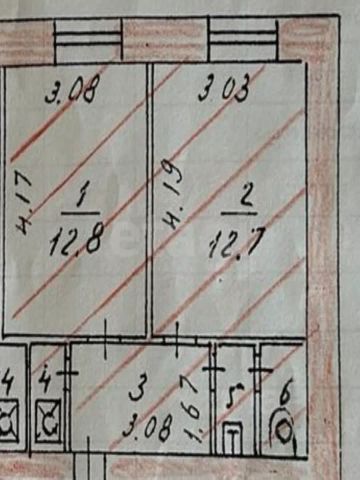 3.08
3.03
4.17
1
12.8
4.19
2
12.7
4
4
3
3.08
1.67
5
6